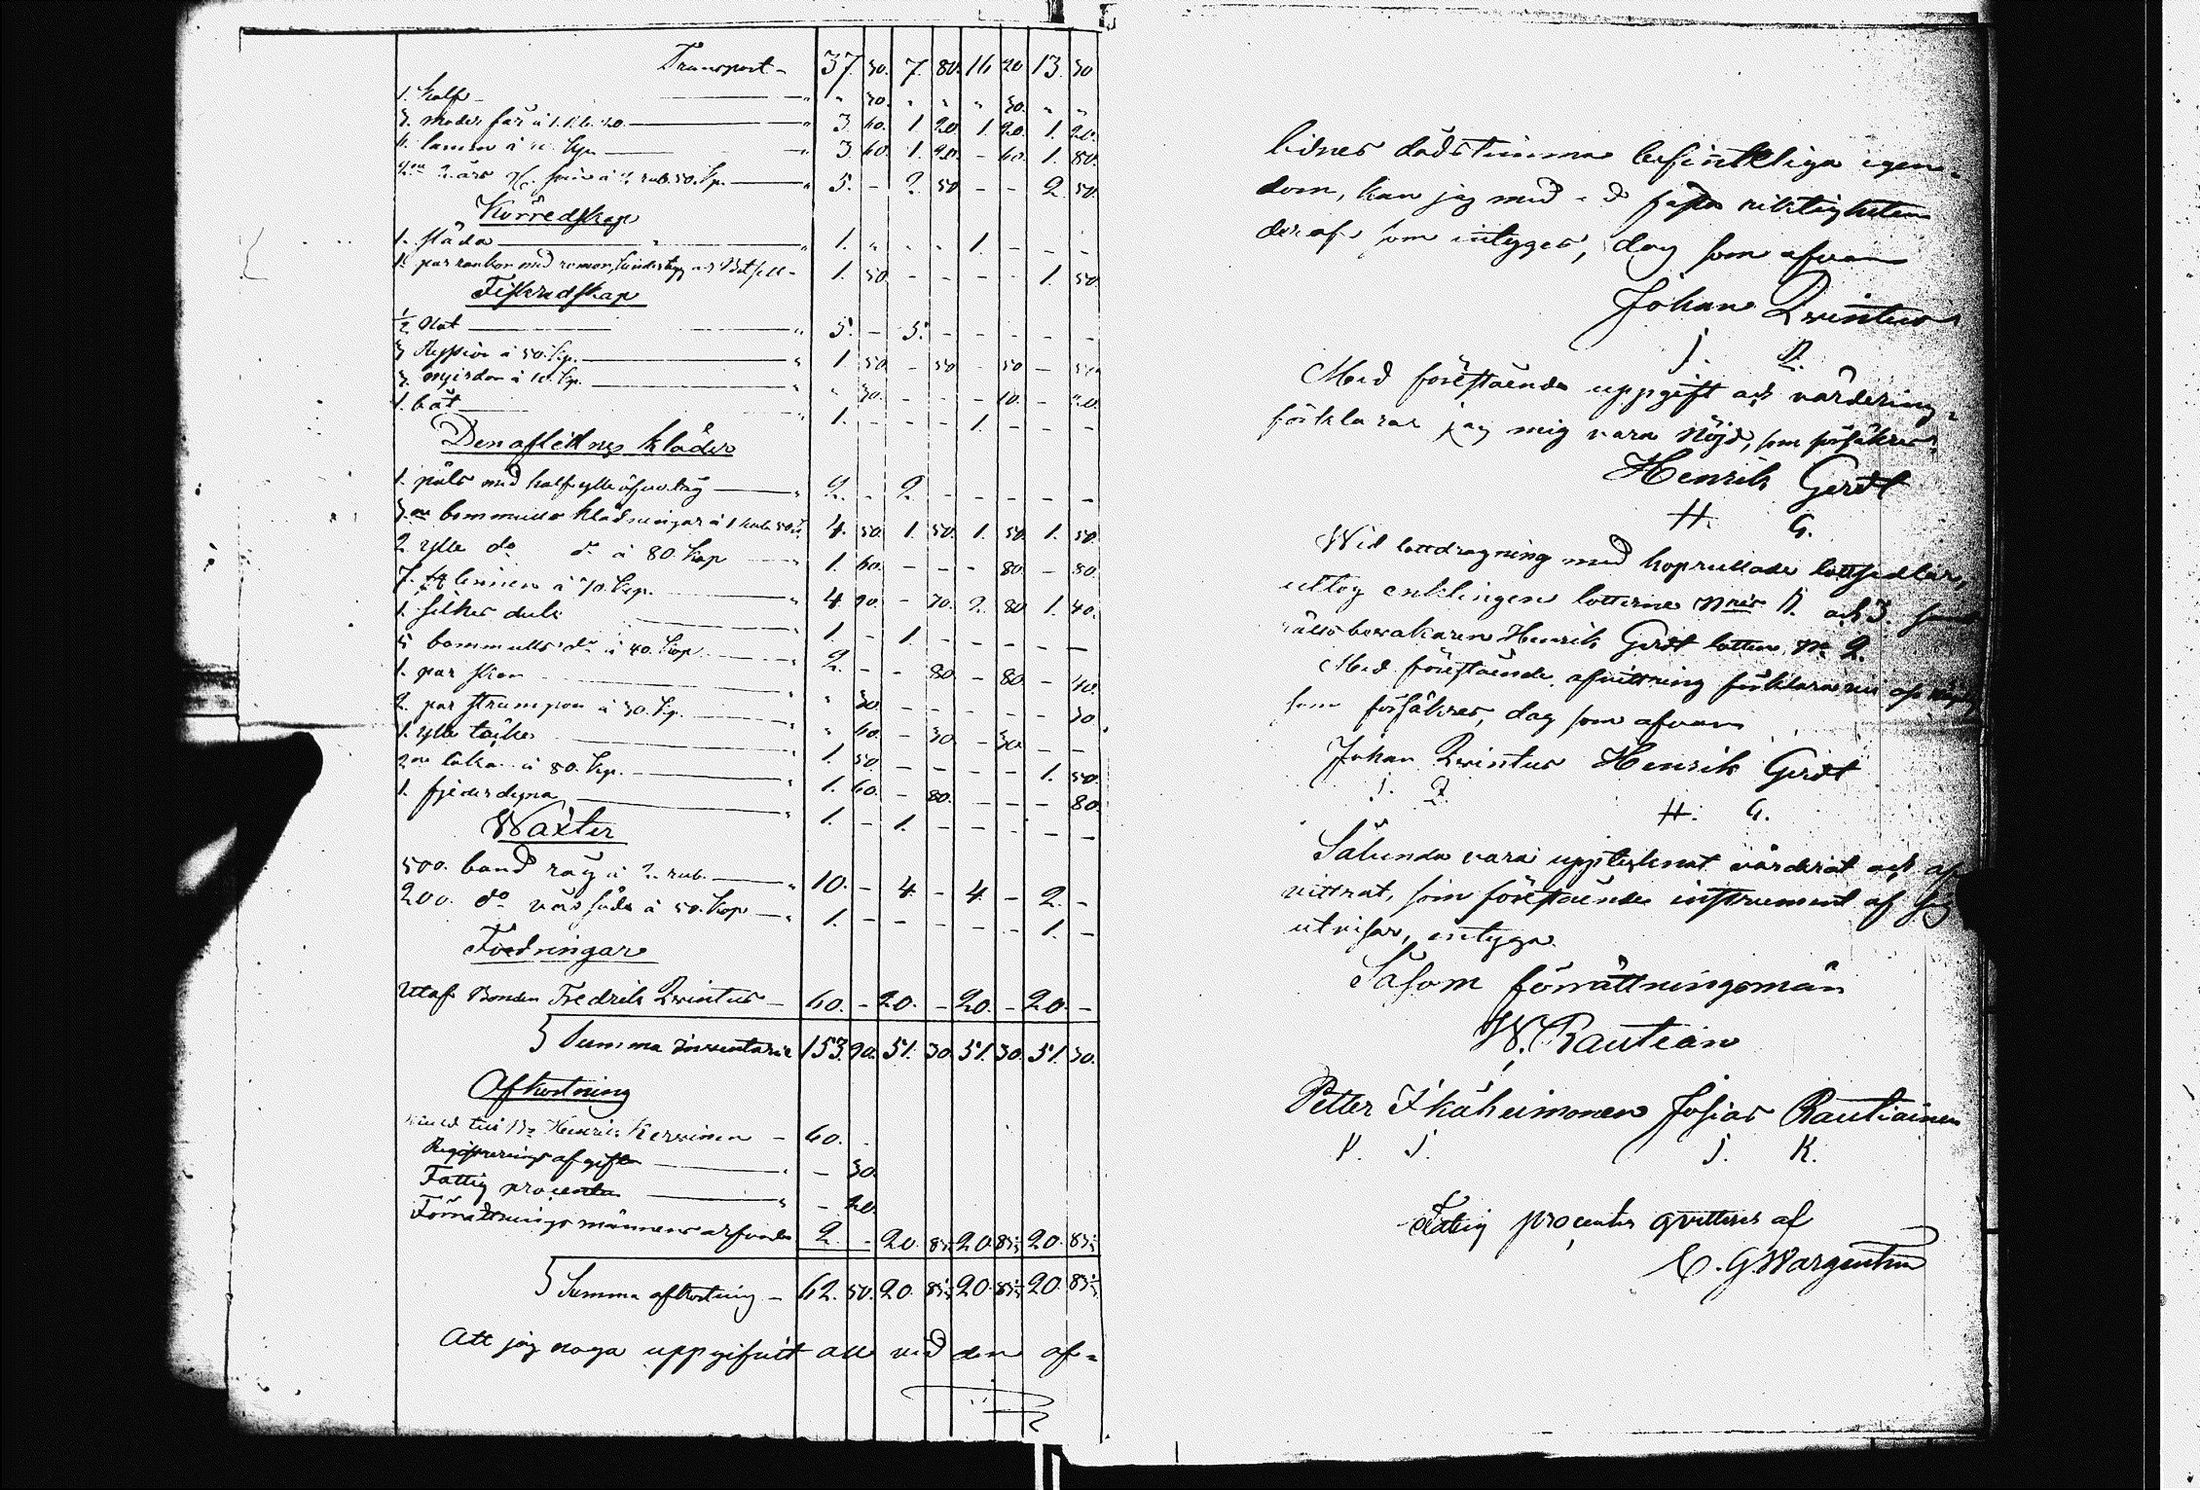 Transport - 37. 30. 7. 80. 16 20 13. 30
1. kalf - " " 30. " " " 30. " "
3. moder får à 1. 20. - " 3. 60. 1 20. 1. 20. 1. 20.
6. lamm à Kp. - " 3. 60. 1. 20. - 60. 1. 80.
2 års à 2 rub. 50. Kp. - " 5. - 2. 50 - - 2 50.
Körredskap
1. släda - " 1. " " " 1. - - -
1. par rankor med remmar, 1. 50. - - - - 1. 50
Fiskredskap
½ Not - " 5. - 5. - - - - -
3 Ryssior à 50. Kp. - " 1. 50 - 50 - 50 - 50
3. à 10. Kp. - " " 30. - - - 10. - 20.
1. båt - " 1. - - - 1. - - -
Den aflidnes kläder
1. päls med halfylle öfverdrag - " 2. - 2. - - - - -
3ne bommulls klädningar à 1 rub. 50 K. 4. 50. 1. 50. 1. 50. 1. 50.
2 ylle do do à 80. Kop - 1. 60. - - - 80. - 80.
7. linnen à 70. Kop. - " 4 90. - 70. 2. 80 1. 40.
1. silkes duk 1. - 1. - - - - -
5 bommulls do à 40. Kop - 2. - - 80. - 80. - 40.
1. par skor - " " 30. - - - - - 30
2. par strumpor à 30. Kp. - " " 60. - 30. - 30. - -
1. ylle täcke - " 1. 50 - - - - 1. 50.
2ne laka à 80. Kp. - " 1. 60. - 80. - - - 80.
1. fjäderdyna - " 1. - 1. - - - - -
Wäxter
500. band råg à 2. rub. - " 10. - 4. - 4. - 2. -
200. do vår säde à 50. Kop - " 1. - - - - - 1. -
Fodringar
Utaf Bonden Fredrik Qvintus - 60. - 20. - 20. - 20. -
Summa Inventarie 153. 90. 51. 30. 51. 30. 51. 30.
Afkortning
till Henric Kervinen - 60.
Registrerings afgift - " - 30.
Fattig procenter - " - 20.
Förrättnings männens arfvode 2. - 20. 83⅓ 20. 83⅓ 20. 83⅓
Summa afkortning - 62. 50. 20. 83⅓ 20. 83⅓ 20. 83⅓
Att jag noga uppgifvit all vid den af-
lidnes dödstimma befinteliga egen-
dom, kan jag med ed fästa riktigheten
deraf, som intygas, dag som ofvan
Johan Qvintus
J. Q.
Med förestående uppgift och värdering
förklarar jag mig vara nöjd, som försäkras
Henrik Gerdt
H. G.
Wid lottdragning med hoprullade lottsedlar,
uttog enklingen lotterne Nris 1. och 3. samt
bevakaren Henrik Gerdt lotten No 2.
Med föreståande afvittring förklarar vi oss nöjda
som försäkres, dag som ofvan
Johan Qvintus Henrik Gerdt
J. Q. H. G.
Sålunda vara uppteknat värderat och af
vittrat, som föreståande instrument af sig
utvisar, intyga
Såsom förrättningsmän
W. Rautian
Petter Ikäheimonen Josias Rautiainen
P. I. J. R.
Fattig procenter qvitteras af
C. G. Wargentin